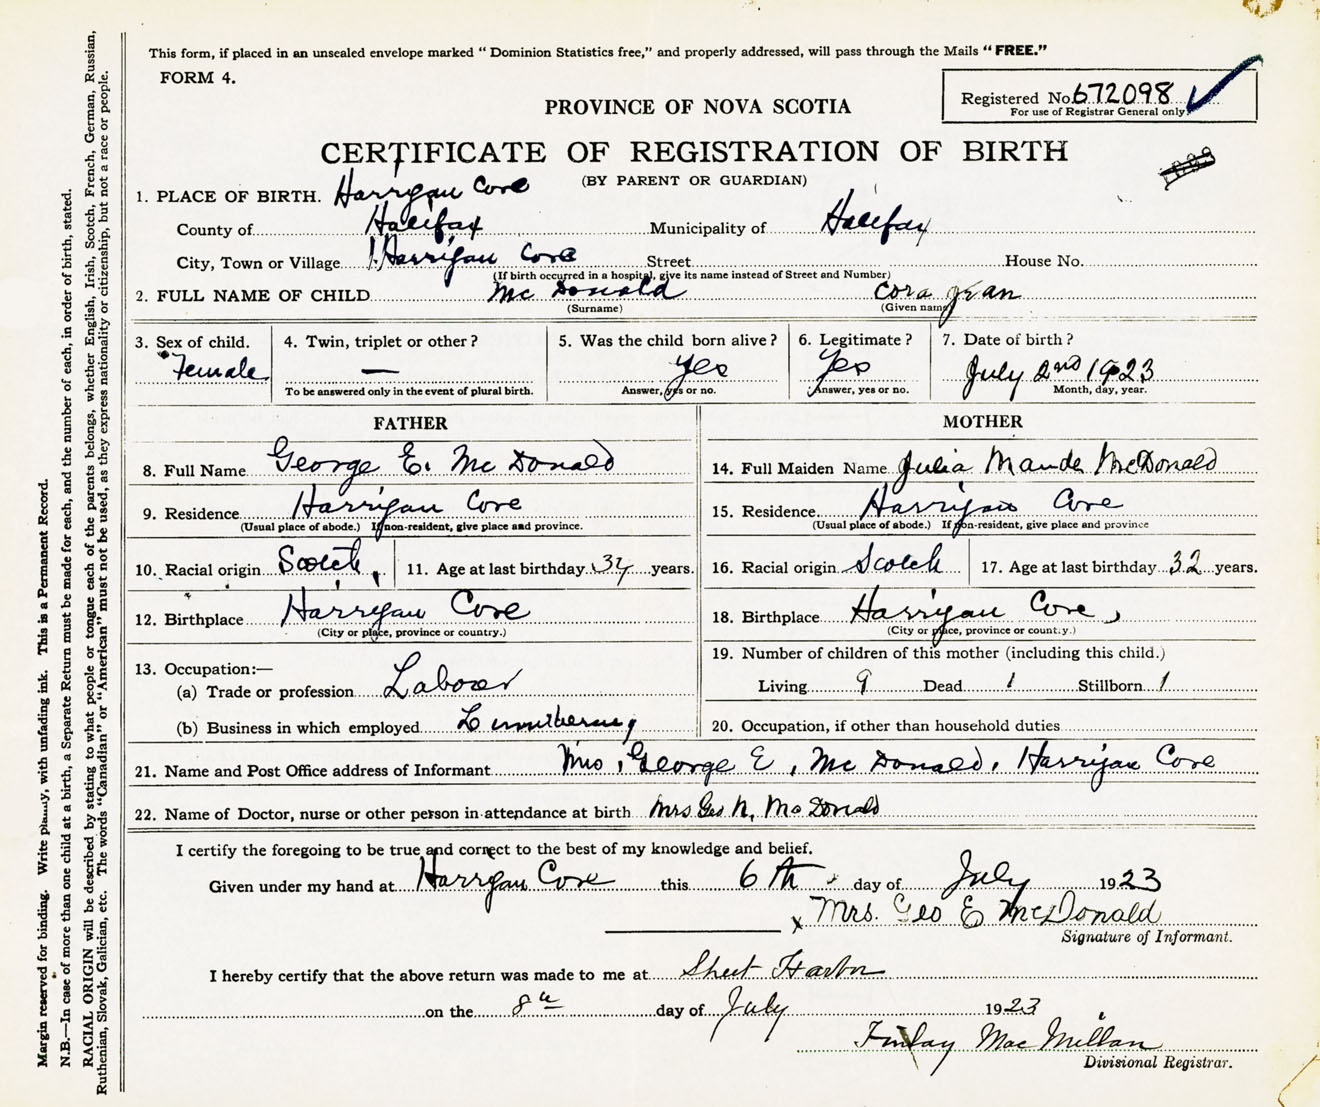 This form, if placed in an unsealed envelope marked “ Dominion Statistics free,” and properly addressed, will pass through the Mails “ FREE.”
FORM 4.
Registered No. 672098
For use of Registrar General only
PROVINCE OF NOVA SCOTIA
CERTIFICATE OF REGISTRATION OF BIRTH
(BY PARENT OR GUARDIAN)
1. PLACE OF BIRTH. Harrigan Cove
County of Halifax Municipality of Halifax
City, Town or Village Harrigan Cove Street House No.
(If birth occurred in a hospital, give its name instead of Street and Number)
2. FULL NAME OF CHILD Mc Donald Cora Jean
(Surname) (Given name)
3. Sex of child. 4. Twin, triplet or other? 5. Was the child born alive? 6. Legitimate? 7. Date of birth?
Female — Yes Yes July 2nd 1923
To be answered only in the event of plural birth. Answer, yes or no. Answer, yes or no. Month, day, year.
FATHER
8. Full Name George E. Mc Donald
9. Residence Harrigan Cove
(Usual place of abode.) If non-resident, give place and province.
10. Racial origin Scotch 11. Age at last birthday 34 years.
12. Birthplace Harrigan Cove
(City or place, province or country.)
13. Occupation:—
(a) Trade or profession Laborer
(b) Business in which employed Lumbering
MOTHER
14. Full Maiden Name Julia Maude McDonald
15. Residence Harrigan Cove
(Usual place of abode.) If non-resident, give place and province
16. Racial origin Scotch 17. Age at last birthday 32 years.
18. Birthplace Harrigan Cove,
(City or place, province or country.)
19. Number of children of this mother (including this child.)
Living 9 Dead 1 Stillborn 1
20. Occupation, if other than household duties
21. Name and Post Office address of Informant Mrs. George E. Mc Donald. Harrigan Cove
22. Name of Doctor, nurse or other person in attendance at birth Mrs Geo N. Mc Donald
I certify the foregoing to be true and correct to the best of my knowledge and belief.
Given under my hand at Harrigan Cove this 6th day of July 1923
x Mrs. Geo E McDonald
Signature of Informant.
I hereby certify that the above return was made to me at Sheet Harbor
on the 8th day of July 1923
Finlay MacMillan
Divisional Registrar.
Margin reserved for binding. Write plainly, with unfading ink. This is a Permanent Record.
N.B.—In case of more than one child at a birth, a Separate Return must be made for each, and the number of each, in order of birth, stated.
RACIAL ORIGIN will be described by stating to what people or tongue each of the parents belongs, whether English, Irish, Scotch, French, German, Russian,
Ruthenian, Slovak, Galician, etc. The words “Canadian” or “American” must not be used, as they express nationality or citizenship, but not a race or people.